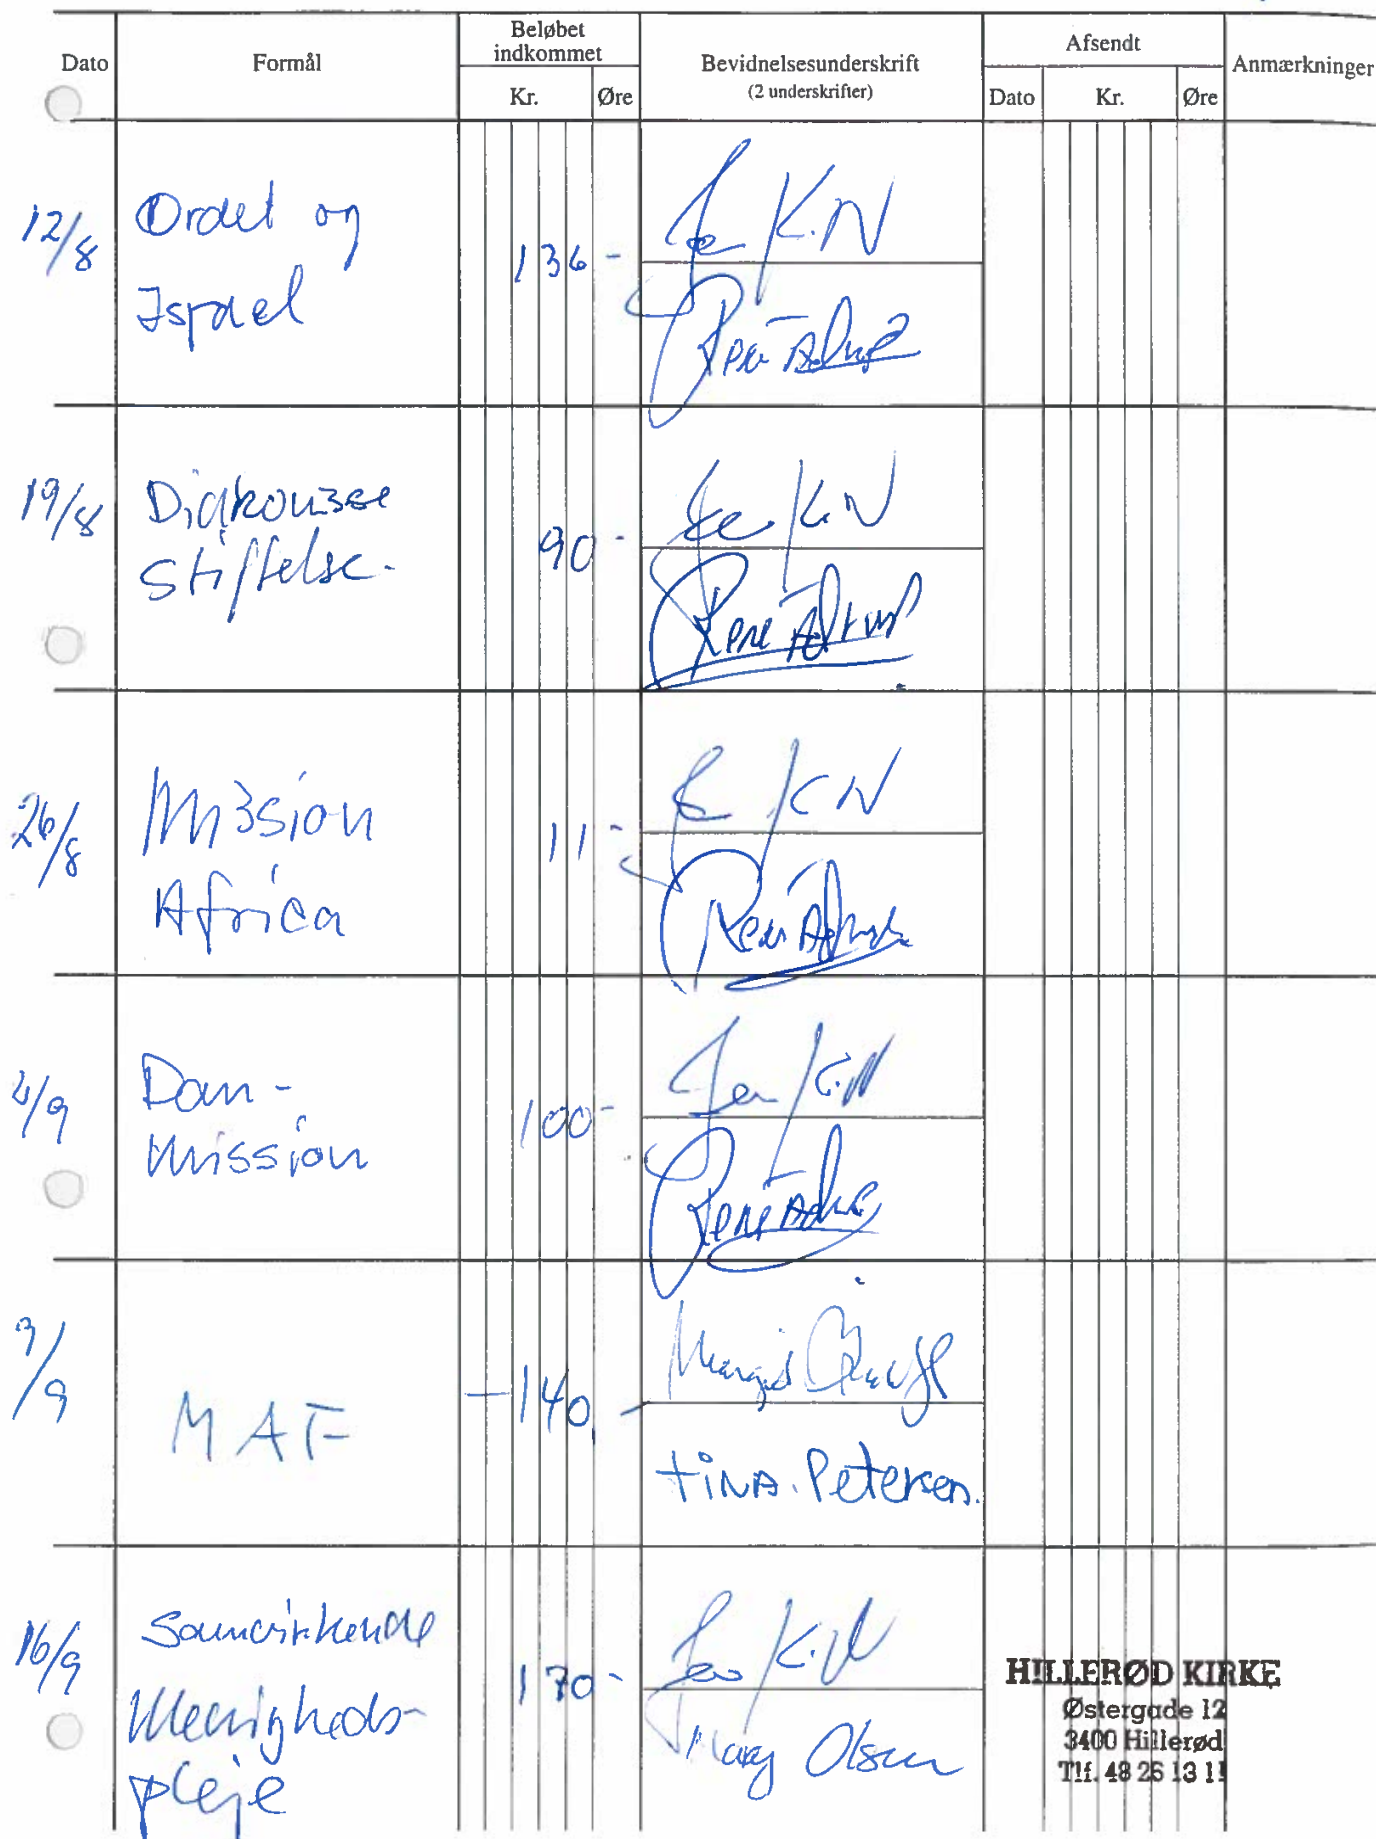 Dato
Formål
Beløbet
indkommet
Kr.
Øre
Bevidnelsesunderskrift
(2 underskrifter)
Afsendt
Dato
Kr.
Øre
Anmærkninger
12/8
Ordet og
Israel
136 -
K.N
19/8
Diakonisse
stiftelse.
90 -
K.N
26/8
Mission
Africa
11 -
K N
Dan -
mission
100 -
K.N
MAF
- 140 -
tiNA. Petersen.
16/9
Samvirkende
Menigheds-
pleje
170 -
K.N
Olsen
HILLERØD KIRKE
Østergade 12
3400 Hillerød
Tlf. 48 26 13 11